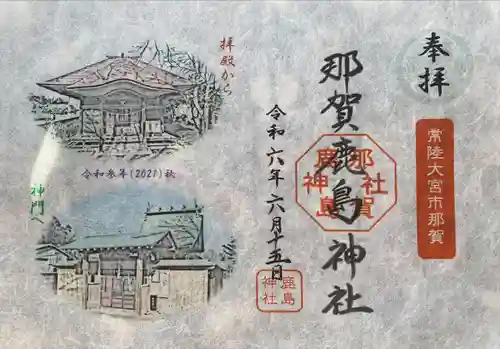 奉拝
常陸大宮市那賀
那賀鹿島神社
那賀鹿島神社
令和六年六月十五日
鹿島神社
拝殿から
令和参年(2021)秋
神門へ